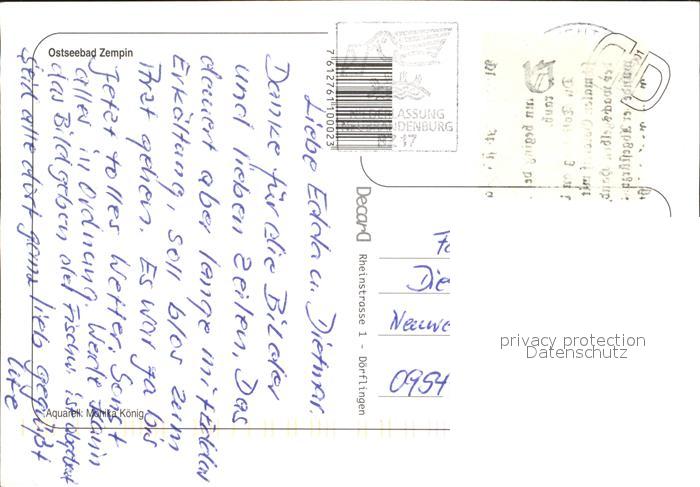 Ostseebad Zempin
Liebe Edda u. Dietmar.
Danke für die Bilder
und lieben Zeilen. Das
dauert aber lange mit Eddas
Erkältung, soll blos zum
Arzt gehen. Es war ja bis
Jetzt tolles Wetter. Sonst
alles in Ordnung. Werde dann
das Bild geben der Fischer ist
Seid alle dort ganz lieb gegrüßt
Ute
Aquarell: Monika König
7 612761 100023
NIEDERLASSUNG
NEUBRANDENBURG
17
Decard
Rheinstrasse 1 - Dörflingen
Fa
Die
0954
privacy protection
Datenschutz